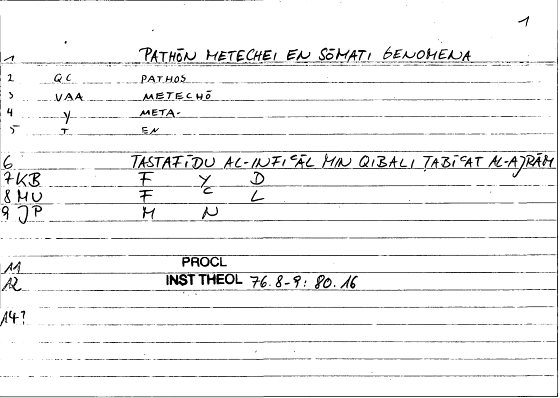 1
1 PATHŌN METECHEI EN SŌMATI GENOMENA
2 QC PATHOS
3 VAA METECHŌ
4 Y META-
5 T EN
6 TASTAFĪDU AL-INFIᶜĀL MIN QIBALI ṬABĪᶜAT AL-AJRĀM
7 KB F Y D
8 MU F ᶜ L
9 JP M N
11 PROCL
12 INST THEOL 76.8-9: 80.16
14?